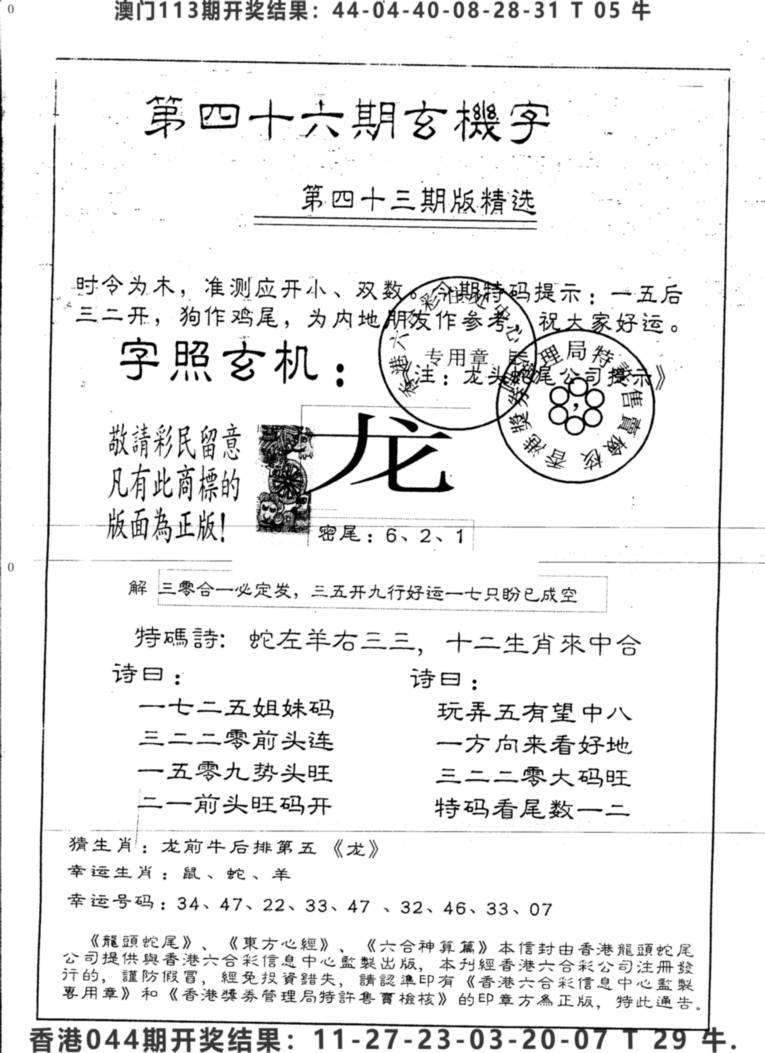 0
澳门113期开奖结果：44-04-40-08-28-31 T 05 牛
第四十六期玄機字
第四十三期版精选
时令为木，准测应开小、双数。今期特码提示：一五后
三二开，狗作鸡尾，为内地朋友作参考，祝大家好运。
字照玄机：
《注：龙头蛇尾公司提示》
专用章
香港獎券管理局特許售賣檢核
敬請彩民留意
凡有此商標的
版面為正版！
龙
密尾：6、2、1
0
解 三零合一必定发，三五开九行好运一七只盼已成空
特碼詩：蛇左羊右三三，十二生肖來中合
诗曰：
一七二五姐妹码
三二二零前头连
一五零九势头旺
二一前头旺码开
诗曰：
玩弄五有望中八
一方向来看好地
三二二零大码旺
特码看尾数一二
猜生肖：龙前牛后排第五《龙》
幸运生肖：鼠、蛇、羊
幸运号码：34、47、22、33、47、32、46、33、07
《龍頭蛇尾》、《東方心經》、《六合神算篇》本信封由香港龍頭蛇尾
公司提供與香港六合彩信息中心監製出版，本刊經香港六合彩公司注冊發
行的，謹防假冒，經免投資錯失，請認準印有《香港六合彩信息中心監製
專用章》和《香港獎券管理局特許售賣檢核》的印章方為正版，特此通告。
香港044期开奖结果：11-27-23-03-20-07 T 29 牛.